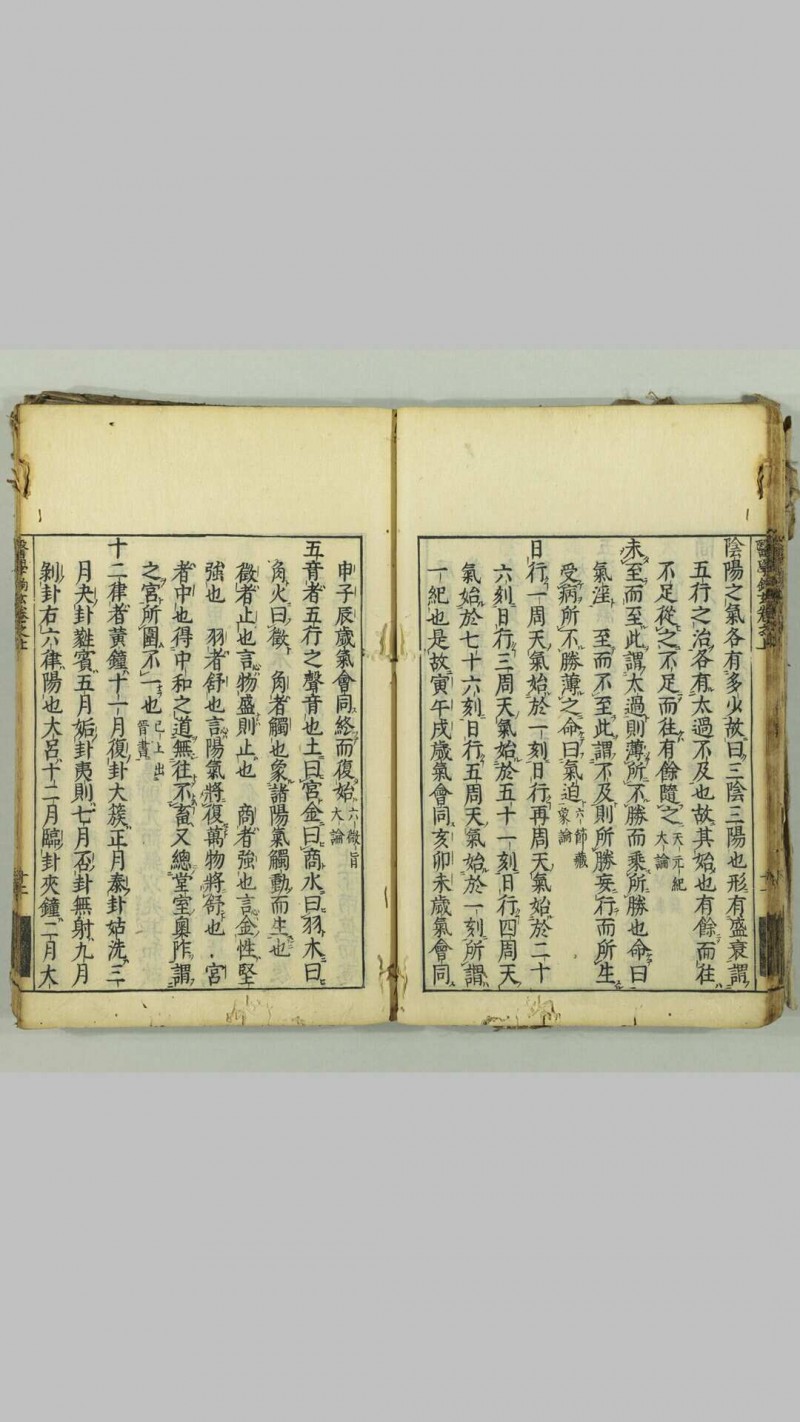 陰陽之氣各有多少故曰三陰三陽也形有盛衰謂
五行之治各有太過不及也故其始也有餘而往
不足從之不足而往有餘隨之天元紀大論
未至而至此謂太過則薄所不勝而乘所勝也命曰
氣淫 至而不至此謂不及則所勝妄行而所生
受病所不勝薄之命曰氣迫六節藏象論
日行一周天氣始於一刻日行再周天氣始於二十
六刻日行三周天氣始於五十一刻日行四周天
氣始於七十六刻日行五周天氣始於一刻所謂
一紀也是故寅午戌歲氣會同亥卯未歲氣會同
申子辰歲氣會同終而復始六微旨大論
五音者五行之聲音也土曰宮金曰商水曰羽木曰
角火曰徵 角者觸也象諸陽氣觸動而生也
徵者止也言物盛則止也 商者強也言金性堅
強也 羽者舒也言陽氣將復萬物將舒也 宮
者中也得中和之道無往不畜又總堂室奧阼謂
之宮所圍不一也已上出晉書
十二律者黃鐘十一月復卦大簇正月泰卦姑洗三
月夬卦蕤賓五月姤卦夷則七月否卦無射九月
剝卦右六律陽也大呂十二月臨卦夾鐘二月大